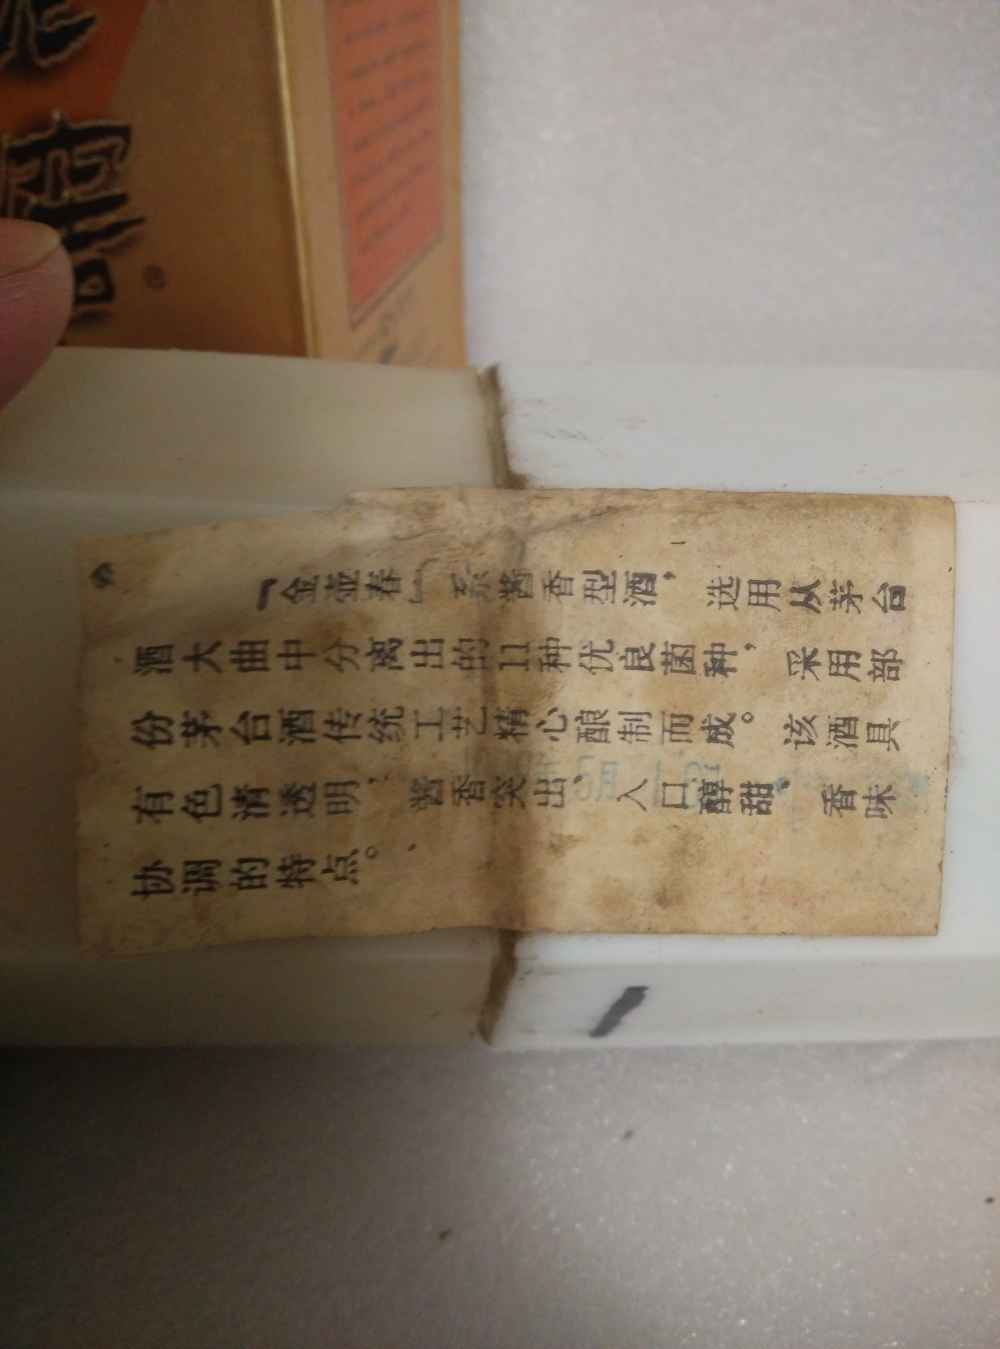 「金壶春」系酱香型酒，选用从茅台
酒大曲中分离出的11种优良菌种，采用部
份茅台酒传统工艺精心酿制而成。该酒具
有色清透明，酱香突出、入口醇甜、香味
协调的特点。